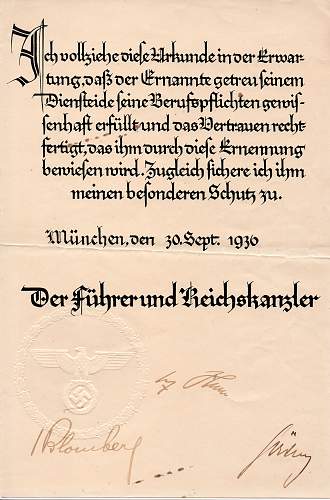 Ich vollziehe diese Urkunde in der Erwar-
tung, daß der Ernannte getreu seinem
Diensteide seine Berufspflichten gewis-
senhaft erfüllt und das Vertrauen recht-
fertigt, das ihm durch diese Ernennung
bewiesen wird. Zugleich sichere ich ihm
meinen besonderen Schutz zu.
München, den 30. Sept. 1936
Der Führer und Reichskanzler
Blomberg
Göring